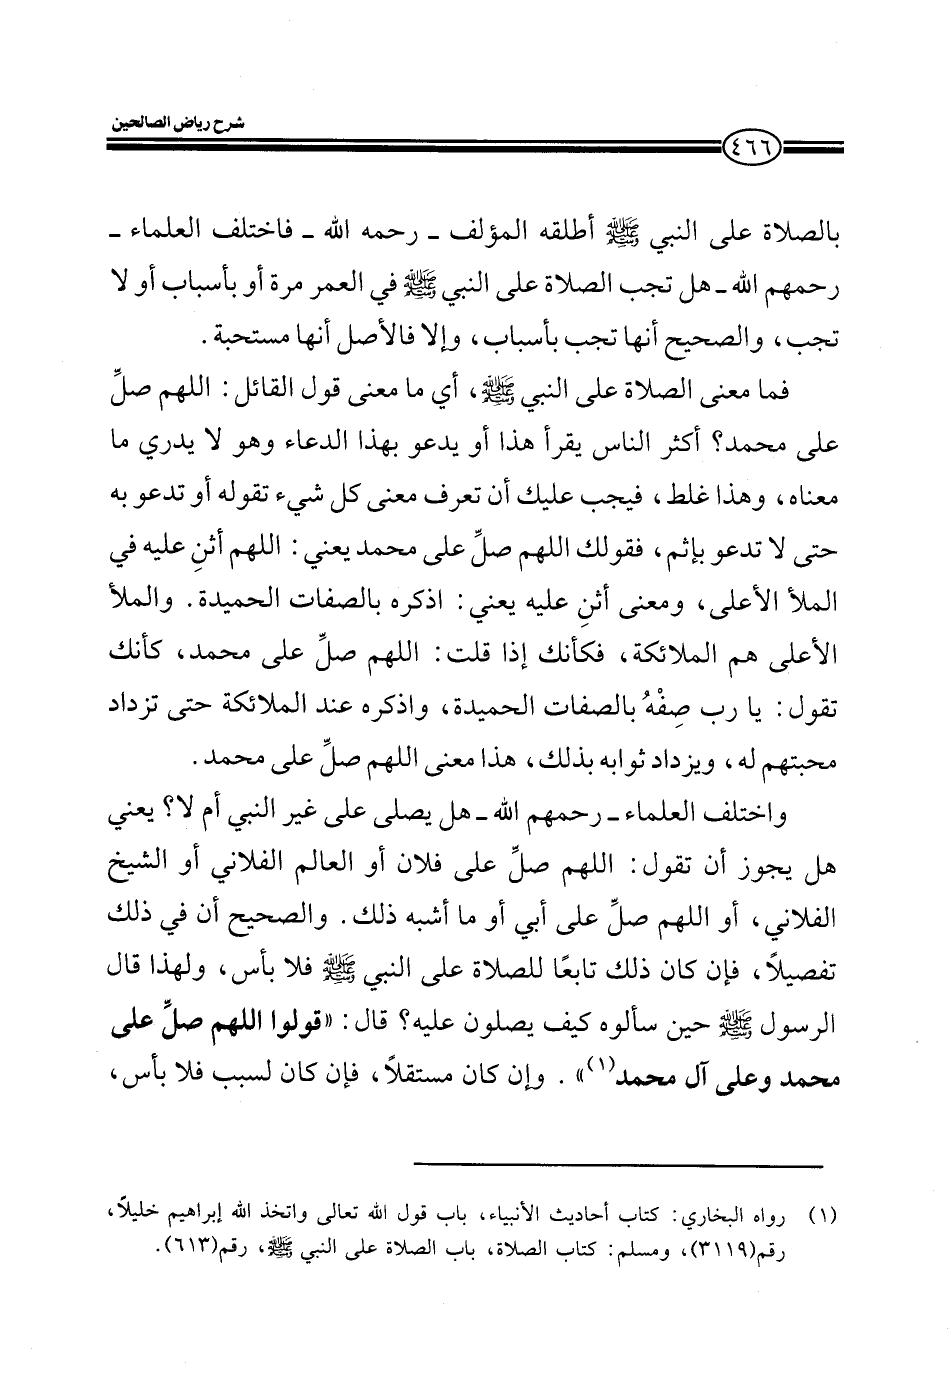 شرح رياض الصالحين
٤٦٦
بالصلاة على النبي ﷺ أطلقه المؤلف ـ رحمه الله ـ فاختلف العلماء ـ
رحمهم الله ـ هل تجب الصلاة على النبي ﷺ في العمر مرة أو بأسباب أو لا
تجب، والصحيح أنها تجب بأسباب، وإلا فالأصل أنها مستحبة.
فما معنى الصلاة على النبي ﷺ، أي ما معنى قول القائل: اللهم صلِّ
على محمد؟ أكثر الناس يقرأ هذا أو يدعو بهذا الدعاء وهو لا يدري ما
معناه، وهذا غلط، فيجب عليك أن تعرف معنى كل شيء تقوله أو تدعو به
حتى لا تدعو بإثم، فقولك اللهم صلِّ على محمد يعني: اللهم أثنِ عليه في
الملأ الأعلى، ومعنى أثنِ عليه يعني: اذكره بالصفات الحميدة. والملأ
الأعلى هم الملائكة، فكأنك إذا قلت: اللهم صلِّ على محمد، كأنك
تقول: يا رب صِفْهُ بالصفات الحميدة، واذكره عند الملائكة حتى تزداد
محبتهم له، ويزداد ثوابه بذلك، هذا معنى اللهم صلِّ على محمد.
واختلف العلماء ـ رحمهم الله ـ هل يصلى على غير النبي أم لا؟ يعني
هل يجوز أن تقول: اللهم صلِّ على فلان أو العالم الفلاني أو الشيخ
الفلاني، أو اللهم صلِّ على أبي أو ما أشبه ذلك. والصحيح أن في ذلك
تفصيلاً، فإن كان ذلك تابعًا للصلاة على النبي ﷺ فلا بأس، ولهذا قال
الرسول ﷺ حين سألوه كيف يصلون عليه؟ قال: «قولوا اللهم صلِّ على
محمد وعلى آل محمد(١)» . وإن كان مستقلاً، فإن كان لسبب فلا بأس،
(١) رواه البخاري: كتاب أحاديث الأنبياء، باب قول الله تعالى واتخذ الله إبراهيم خليلاً،
رقم(٣١١٩)، ومسلم: كتاب الصلاة، باب الصلاة على النبي ﷺ، رقم(٦١٣).